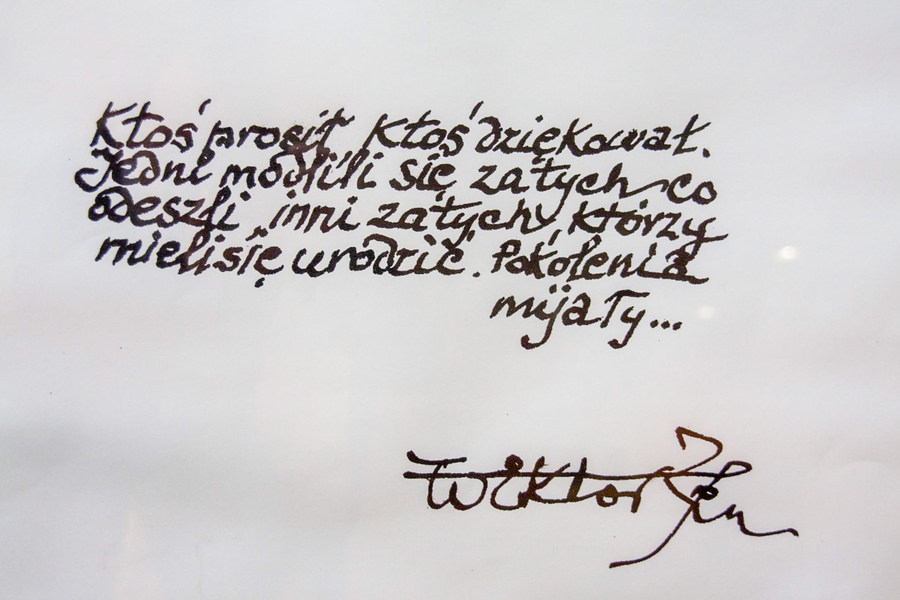 Ktoś prosił Ktoś dziękował.
Jedni modlili się za tych co
odeszli, inni za tych, którzy
mieli się urodzić. Pokolenia
mijały...
Wiktor Zin